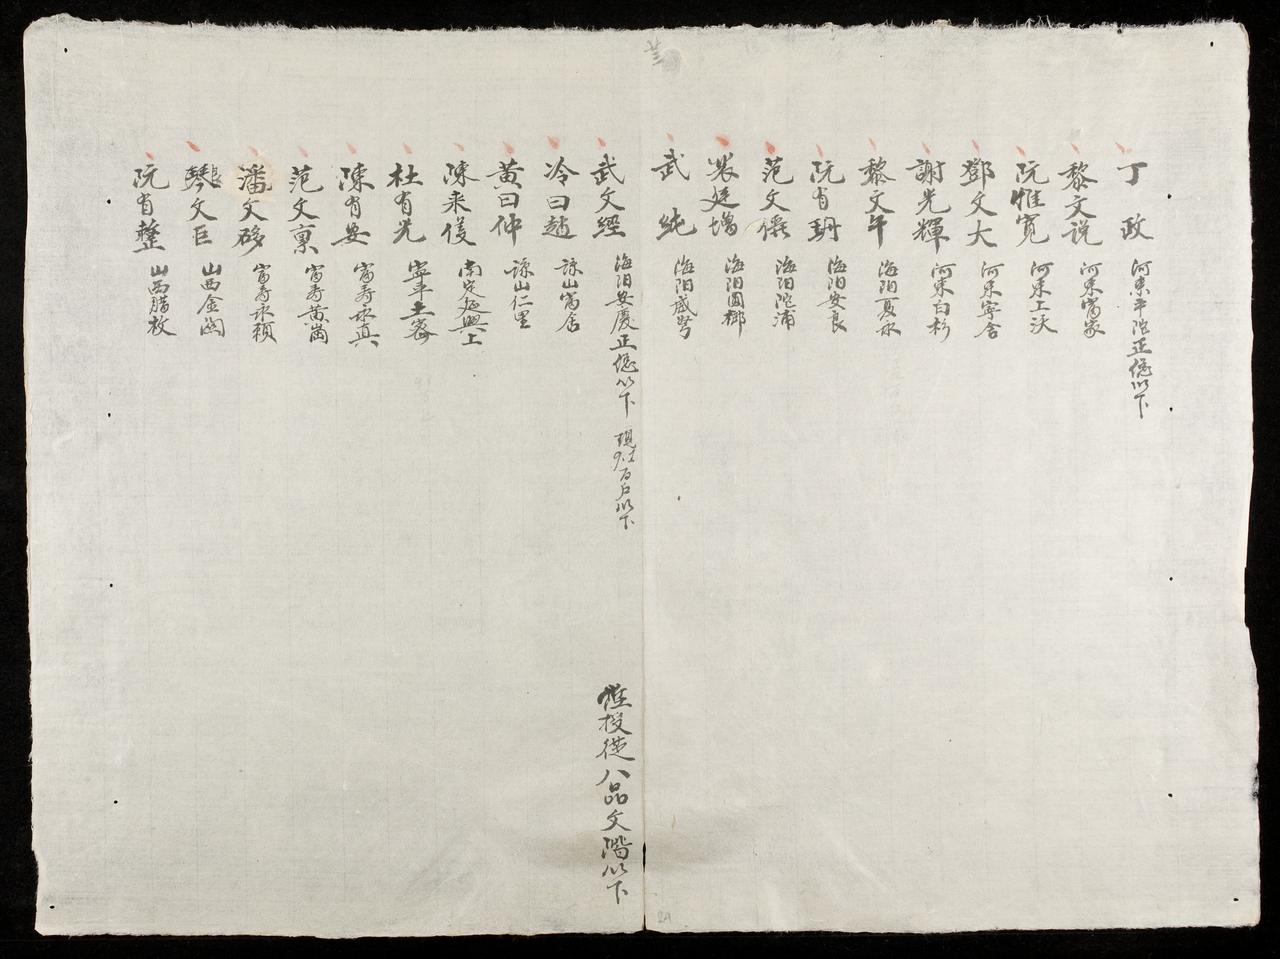 丁政 河東平陀正總以下
黎文説 河東富家
阮惟寬 河東上沃
鄧文大 河東寧舍
謝光輝 河東白杉
黎文午 海陽夏永
阮有 海陽安良
范文 海陽陀浦
裴廷增 海陽園梛
武純 海陽盛
武文經 海陽安慶正總以下 現 百戶以下 權授從八品文階以下
冷曰趙 諒山富舍
黃曰仲 諒山仁里
陳來後 南定延興上
杜有光 寧平土密
陳有安 富壽永真
范文稟 富壽黃崗
潘文 富壽永賴
文巨 山西金關
阮有整 山西腊枚
24